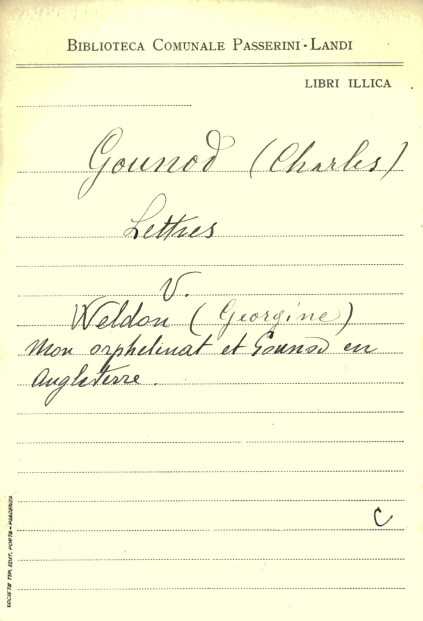 BIBLIOTECA COMUNALE PASSERINI-LANDI
LIBRI ILLICA
Gounod (Charles)
Lettres
V.
Weldon (Georgine)
Mon orphelinat et Gounod en
Angleterre.
C
SOCIETÀ TIP. EDIT. PORTA - PIACENZA